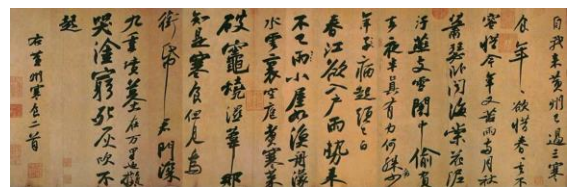 自我來黃州已過三寒
食年年欲惜春春去不
容惜今年又苦雨兩月秋
蕭瑟臥聞海棠花泥
汙燕支雪闇中偷負
去夜半真有力何殊少
年子病起頭已白
春江欲入戶雨勢來
不已雨小屋如漁舟濛濛
水雲裏空庖煮寒菜
破竈燒濕葦那
知是寒食但見烏
銜帋君門深
九重墳墓在万里也擬
哭塗窮死灰吹不
起
右黃州寒食二首